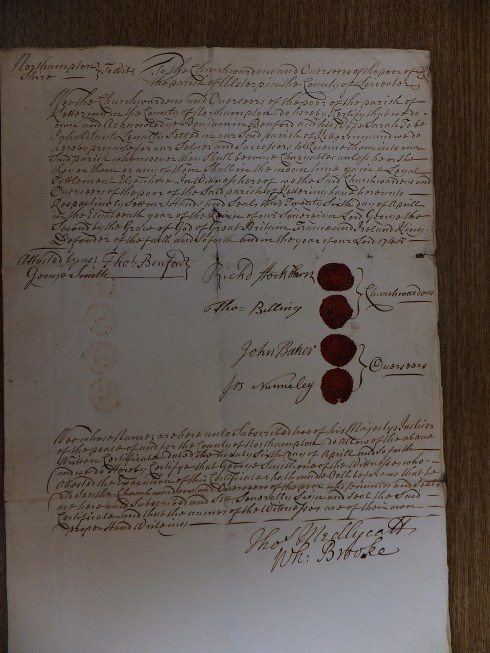 Northampton
Shire } To Wit
To the Churchwardens and Overseers of the poor of
the parish of in the County of Leicester
We the Churchwardens and Overseers of the poor of the parish of
Kettering in the County of Northampton do hereby Certify that we do
own and Acknowledge Benjamin Benford and his Wife Sarah To be
Inhabitants Legally Settled in our Said parish of Kettering and we do
hereby promise for our Selves and Successors to Receive them into our
Said parish whensoever they Shall become Chargeable unless he or She
they or them or any of them Shall in the mean time gain a Legal
Settlement Elsewhere In Witness hereof we the Said Churchwardens and
Overseers of the poor of the Said parish of Kettering have hereunto
Respectively Set our Hands and Seals this Twenty Sixth day of Aprill
in the Eighteenth year of the Reigne of our Sovereign Lord George the
Second by the Grace of God of Great Brittain France and Ireland King
Defender of the faith and So forth and in the year of our Lord 1745
Attested by us } Tho: Benford
George Smith
Rich'd
Tho: Billing
} Churchwardens
John Baker
Jos Nunneley
} Overseers
We whose Names are hereunto Subscribed two of his Majestys Justices
of the peace of and for the County of Northampton do allow of the above
Written Certificate dated the Twenty Sixth day of Aprill and So forth
and we do Hereby Certifye that George Smith one of the Witnesses who
attested the Execution of this Certificate hath made Oath before us that he
did See the Churchwardens and Overseers of the poor whose names and Seals
are hereunto Subscribed and Set Severally Sign and Seal the Said
Certificate and that the names of the Witnesses are of their own
proper Hand Writeing
Tho: Medlycott
Wm: Brooke